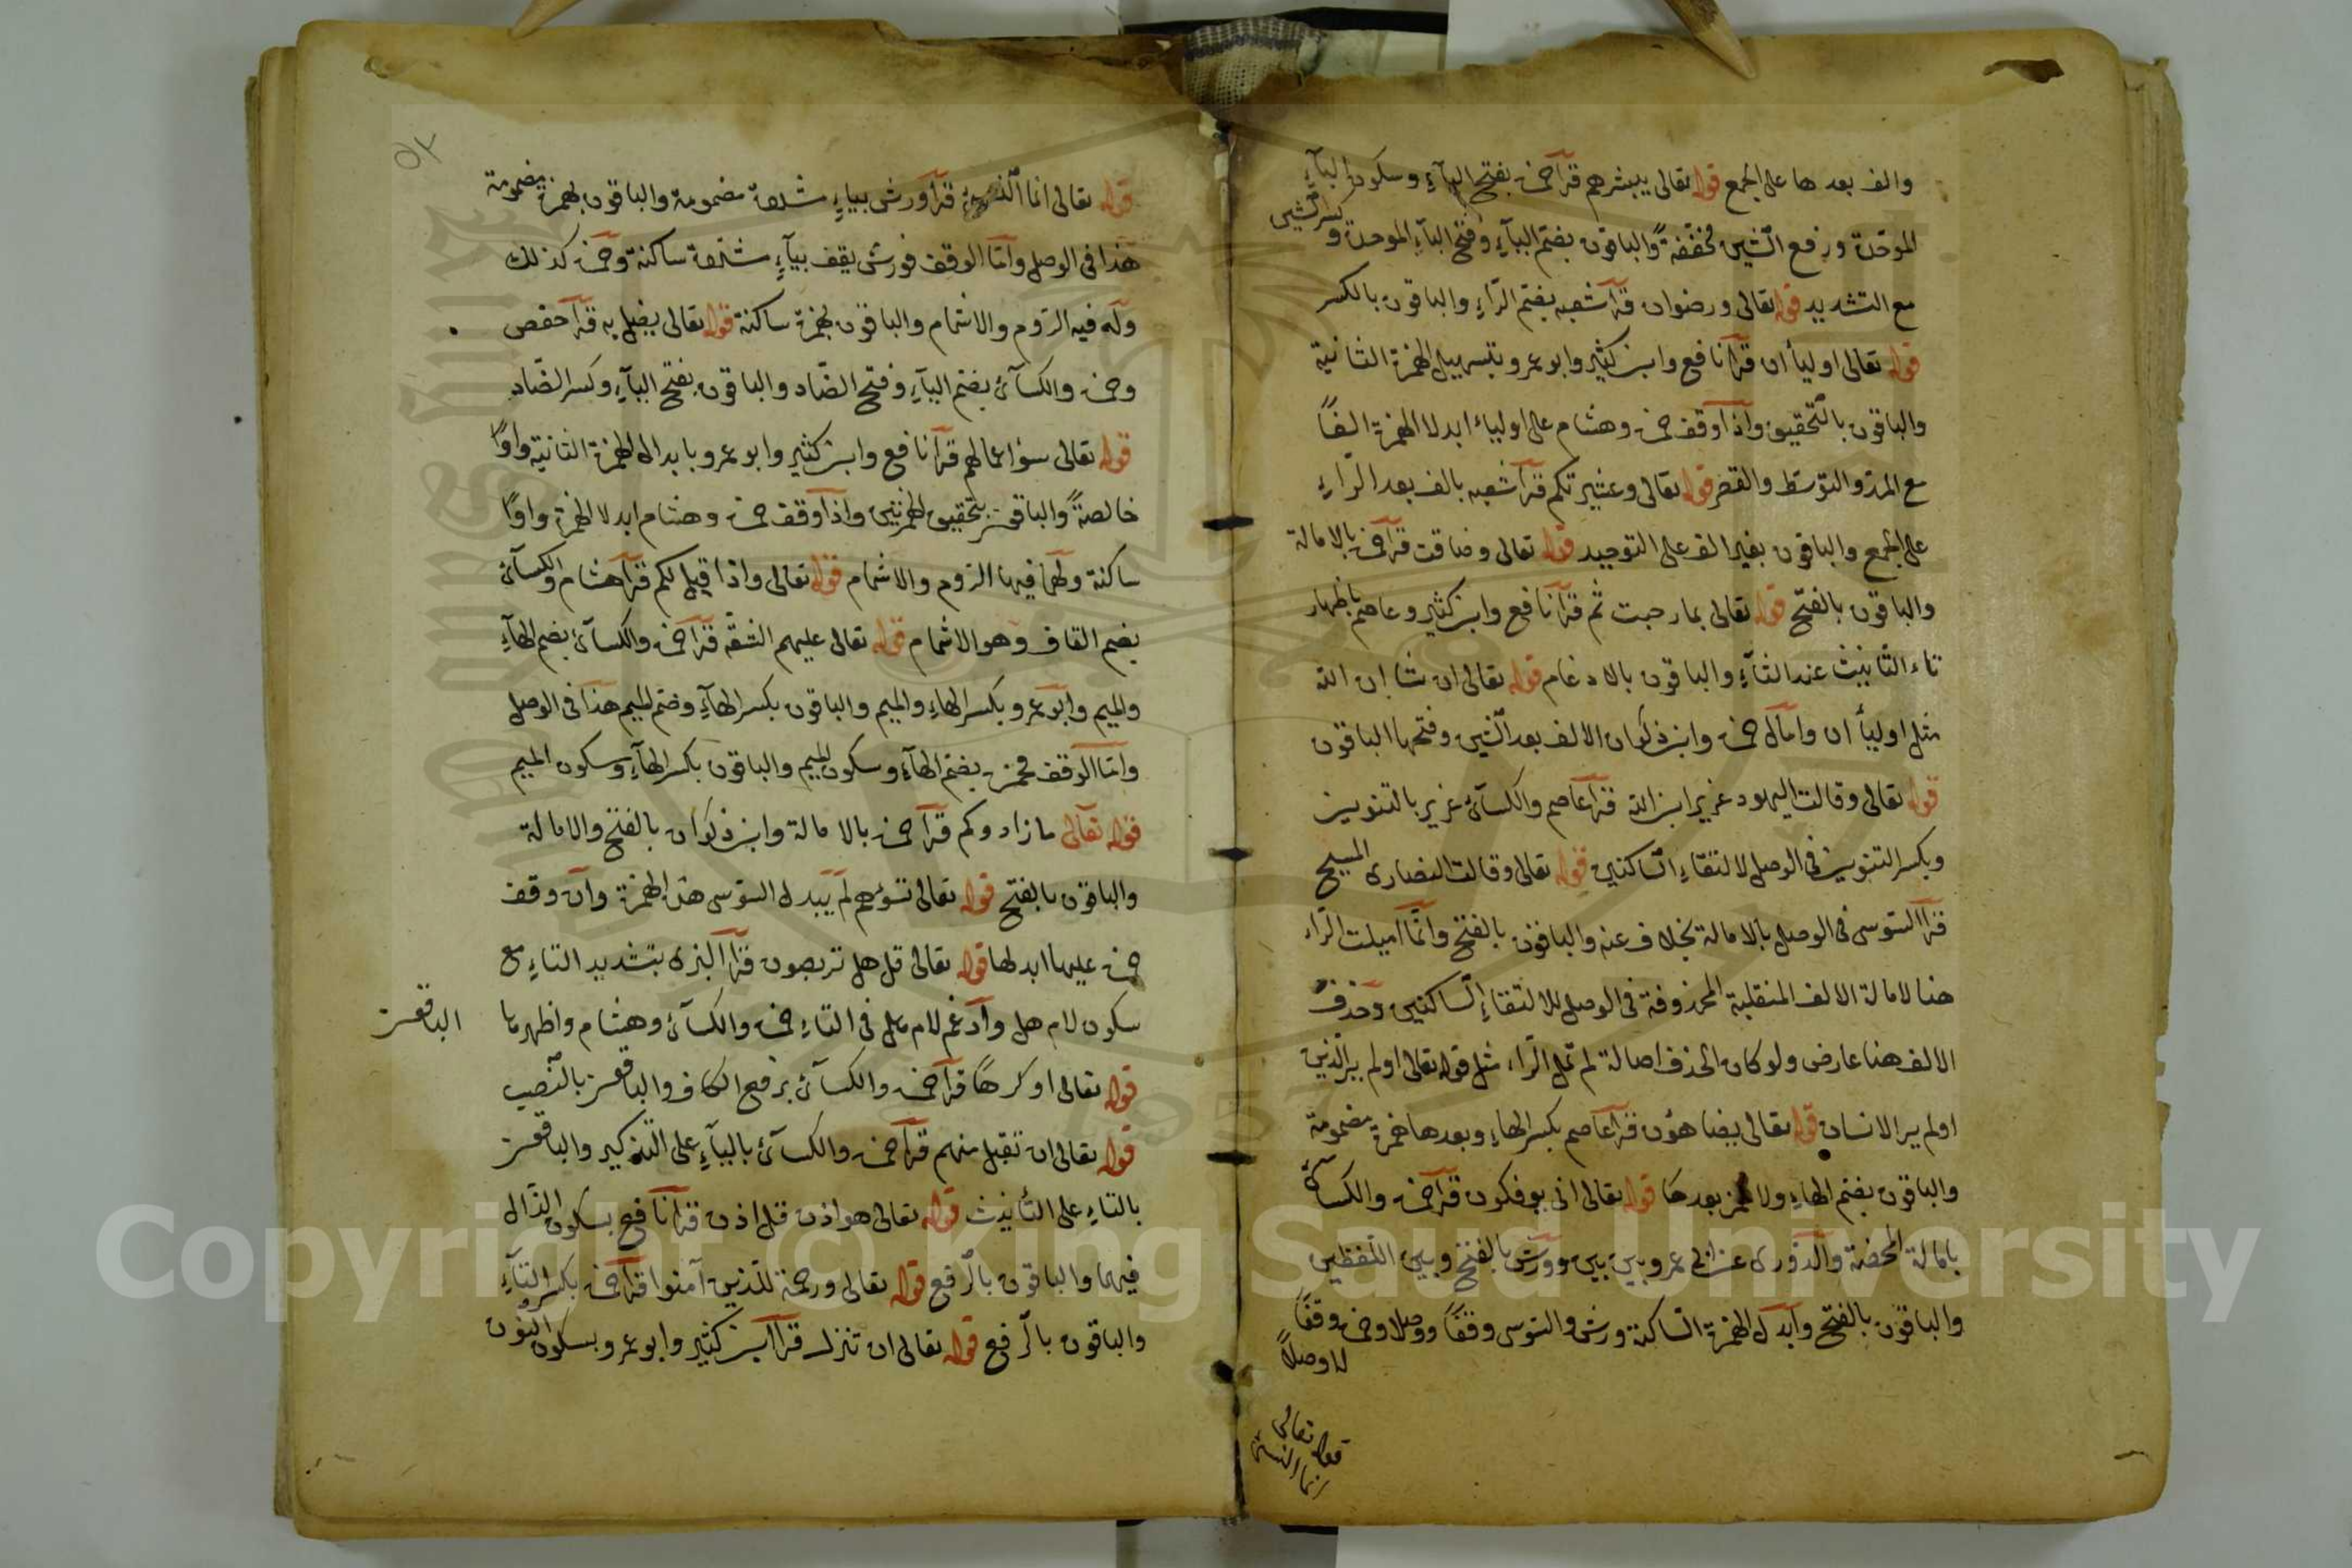 والف بعدها على الجمع قوله تعالى يبشرهم قرأ حمزة بفتح اليآءِ وسكون البآءِ
الموحّدة ورفع الشّين مخفّفةً والباقون بضمّ اليآءِ وفتح البآءِ الموحدة وكسر الشّين
مع التشديد قوله تعالى ورضوان قرأ شعبه بضمّ الرّاءِ والباقون بالكسر
قوله تعالى اولياء ان قرأ نافع وابن كثير وابو عمرو بتسهييل الهمزة الثانية
والباقون بالتحقيق واذا وقف حمزة وهشام على اولياء ابدلا الهمزة الفًا
مع المدّ والتوسّط والقصر قوله تعالى وعشيرتكم قرأ شعبه بالف بعد الرّاءِ
على الجمع والباقون بغير الف على التوحيد قوله تعالى وضاقت قرأ حمزة بالامالة
والباقون بالفتح قوله تعالى بما رحبت ثم قرأ نافع وابن كثير وعاصم باظهار
تاء التّانيث عند الثآءِ والباقون بالادغام قوله تعالى ان شا ان الله
مثل اولياء ان وامآل حمزة وابن ذكوان الالف بعد الشّين وفتحها الباقون
قوله تعالى وقالت اليهود عزير ابن الله قرأ عاصم والكسآئ عزير بالتنوين
وبكسر التنوين في الوصل لالتقاءِ السّاكنين قوله تعالى وقالت النصارى المسيح
قرأ السّوسى فى الوصل بالامالة بخلاف عنه والباقون بالفتح وانّما اميلت الرّاء
هنا لامالة الالف المنقلبة المحذوفة فى الوصل للالتقاءِ السّاكنين وحذف
الالف هنا عارض ولو كان الحذف اصالة لم تمل الرّاء مثل قوله تعالى اولم ير الّذين
اولم ير الانسان قوله تعالى يضاهؤن قرأ عاصم بكسر الهاءِ وبعدها همزة مضمومة
والباقون بضمّ الهاءِ ولا همز بعدها قوله تعالى انى يوفكون قرأ حمزة والكسآئ
بامالة المحضة والدّورى عن ابى عمرو بين بين وورش بالفتح وبين اللّفظين
والباقون بالفتح وابدل الهمزة السّاكنة ورش والسّوسى وقفًا ووصلا وحمزة وقفًا
لا وصلاً
قوله تعالى
انما النسئ
٥٢
قوله تعالى انما النسئ قرأ ورش بياءٍ مشدّدة مضمومة والباقون بهمزة مضمومة
هذا فى الوصل وامّا الوقف فورش يقف بيآءٍ مشدّدة ساكنة وحمزة كذلك
وله فيه الرّوم والاشمام والباقون بهمزة ساكنة قوله تعالى يضل به قرأ حفص
وحمزة والكسآئ بضمّ اليآءِ وفتح الضّاد والباقون بفتح اليآءِ وكسر الضّاد
قوله تعالى سؤ اعمالهم قرأ نافع وابن كثير وابو عمرو بابدال الهمزة الثانية واوًا
خالصةً والباقون بتحقيق الهمزتين واذا وقف حمزة وهشام ابدلا الهمزة واوًا
ساكنة ولهما فيها الرّوم والاشمام قوله تعالى واذا قيل لكم قرأ هشام والكسآئ
بضم القاف وهو الاشمام قوله تعالى عليهم الشقّه قرأ حمزة والكسآئ بضم الهآءِ
والميم وابو عمرو بكسر الهاءِ والميم والباقون بكسر الهآءِ وضمّ الميم هذا فى الوصل
وامّا الوقف فحمزة بضمّ الهآءِ وسكون الميم والباقون بكسر الهآءِ وسكون الميم
قوله تعالى ما زادوكم قرأ حمزة بالامالة وابن ذكوان بالفتح والامالة
والباقون بالفتح قوله تعالى تسؤهم لم يبدل السّوسى هذه الهمزة وان وقف
حمزة عليها ابدلها قوله تعالى قل هل تربصون قرأ البزى بتشديد التاءِ مع
سكون لام هل وادغم لام هل فى التاءِ حمزة والكسآئ وهشام واظهرها الباقون
قوله تعالى او كرهًا قرأ حمزة والكسآئ برفع الكاف والباقون بالنّصب
قوله تعالى ان تقبل منهم قرأ حمزة والكسآئ باليآءِ على التّذكير والباقون
بالتاءِ على التّأنيث قوله تعالى هو اذن قل اذن قرأ نافع بسكون الذّال
فيهما والباقون بالرّفع قوله تعالى ورحمة للّذين آمنوا قرأ حمزة بكسر التآءِ
والباقون بالرّفع قوله تعالى ان تنزل قرأ ابن كثير وابو عمرو بسكون النون
Copyright © King Saud University